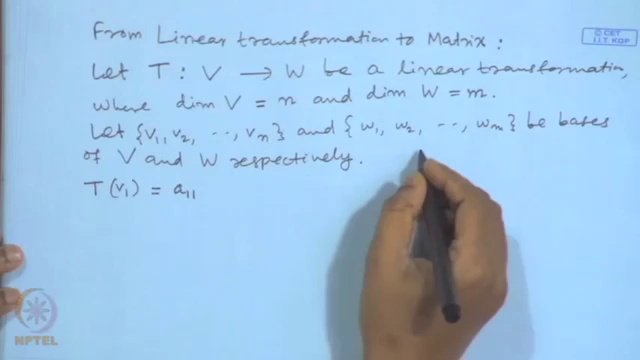 From Linear transformation to Matrix :
© CET
I.I.T. KGP
Let T : V → W be a linear transformation,
where dim V = n and dim W = m.
Let {v₁, v₂, ..., vₙ} and {w₁, w₂, ..., wₘ} be bases
of V and W respectively.
T(v₁) = a₁₁
NPTEL